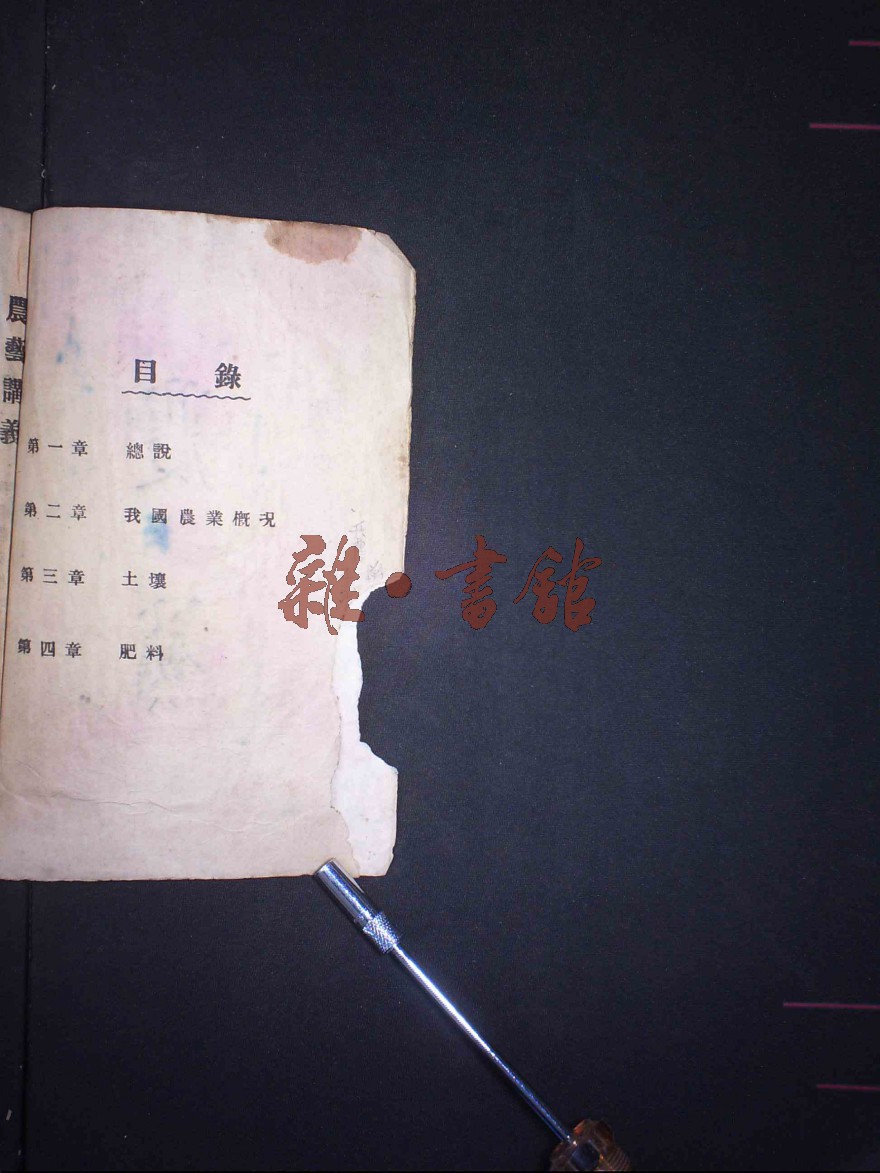 農藝講義
目錄
第一章 總說
第二章 我國農業概況
第三章 土壤
第四章 肥料
雜·書館